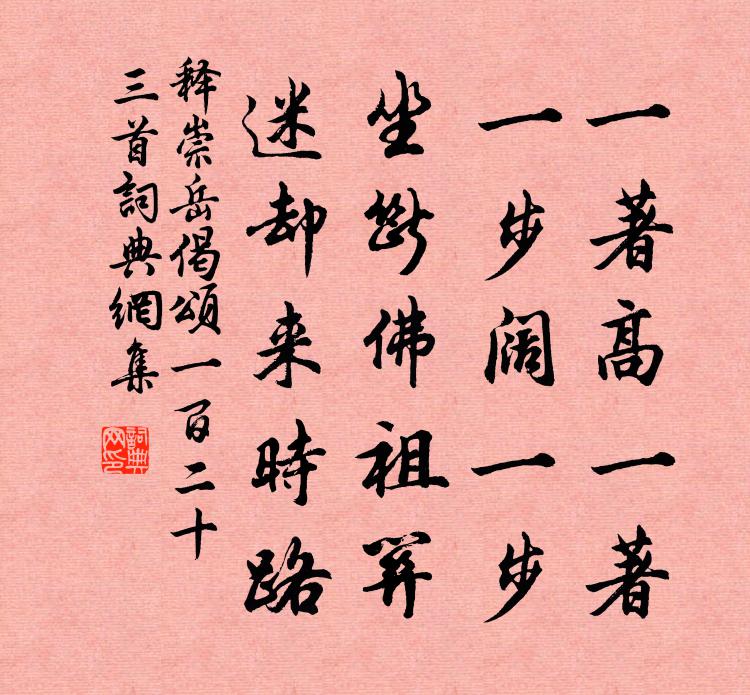 一著高一著
一步阔一步
坐斷佛祖关
迷却来時路
释崇岳偈頌一百二十
三首詞典網集
詞典
网印